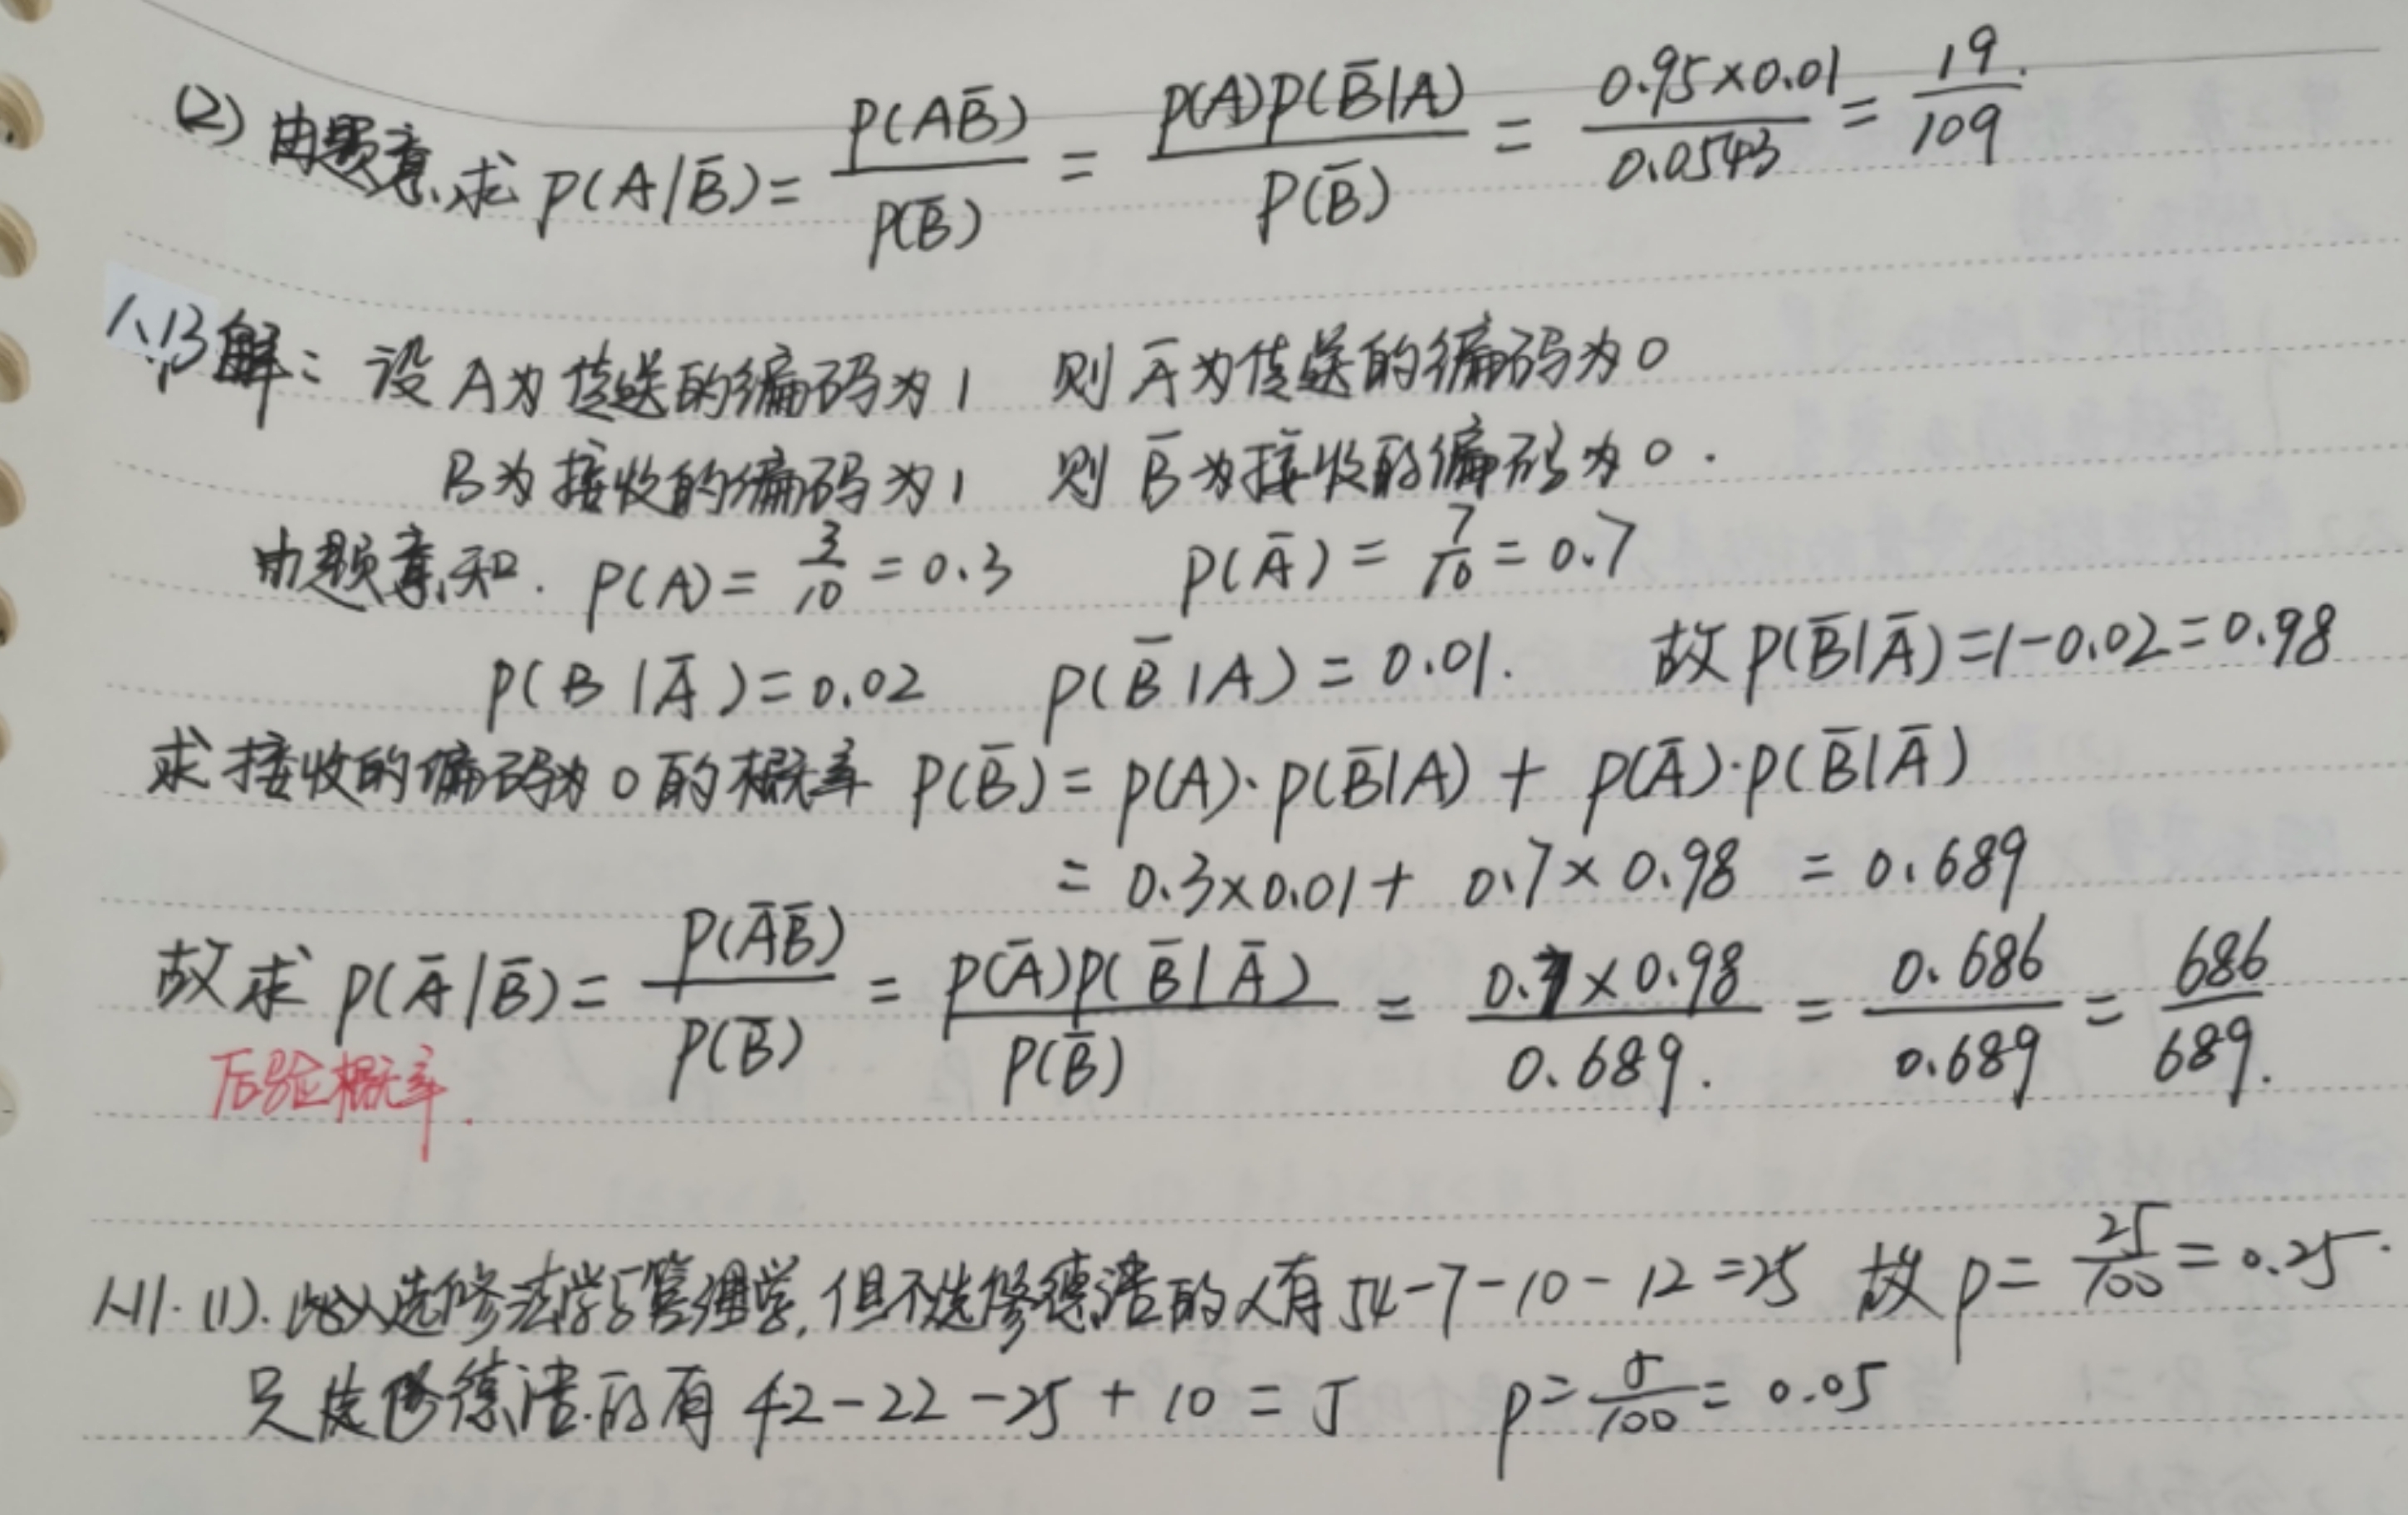 (2) 由题意,求 P(A|B̄) = P(AB̄)/P(B̄) = P(A)P(B̄|A)/P(B̄) = 0.95×0.01/0.0543 = 19/109.
1、13解: 设 A为传送的编码为1 则 Ā为传送的编码为0
B为接收的编码为1 则 B̄为接收的编码为0.
由题意,知. P(A) = 3/10 = 0.3 P(Ā) = 7/10 = 0.7
P(B|Ā) = 0.02 P(B̄|A) = 0.01. 故 P(B̄|Ā) = 1-0.02 = 0.98
求接收的编码为0的概率 P(B̄) = P(A)·P(B̄|A) + P(Ā)·P(B̄|Ā)
= 0.3×0.01 + 0.7×0.98 = 0.689
故求 P(Ā|B̄) = P(ĀB̄)/P(B̄) = P(Ā)P(B̄|Ā)/P(B̄) = 0.7×0.98/0.689. = 0.686/0.689 = 686/689.
后验概率.
1-11. (1). 选修法学与管理学,但不选修德语的人有 54-7-10-12=25 故 P = 25/100 = 0.25.
只选修德语的有 42-22-25+10=5 P = 5/100 = 0.05